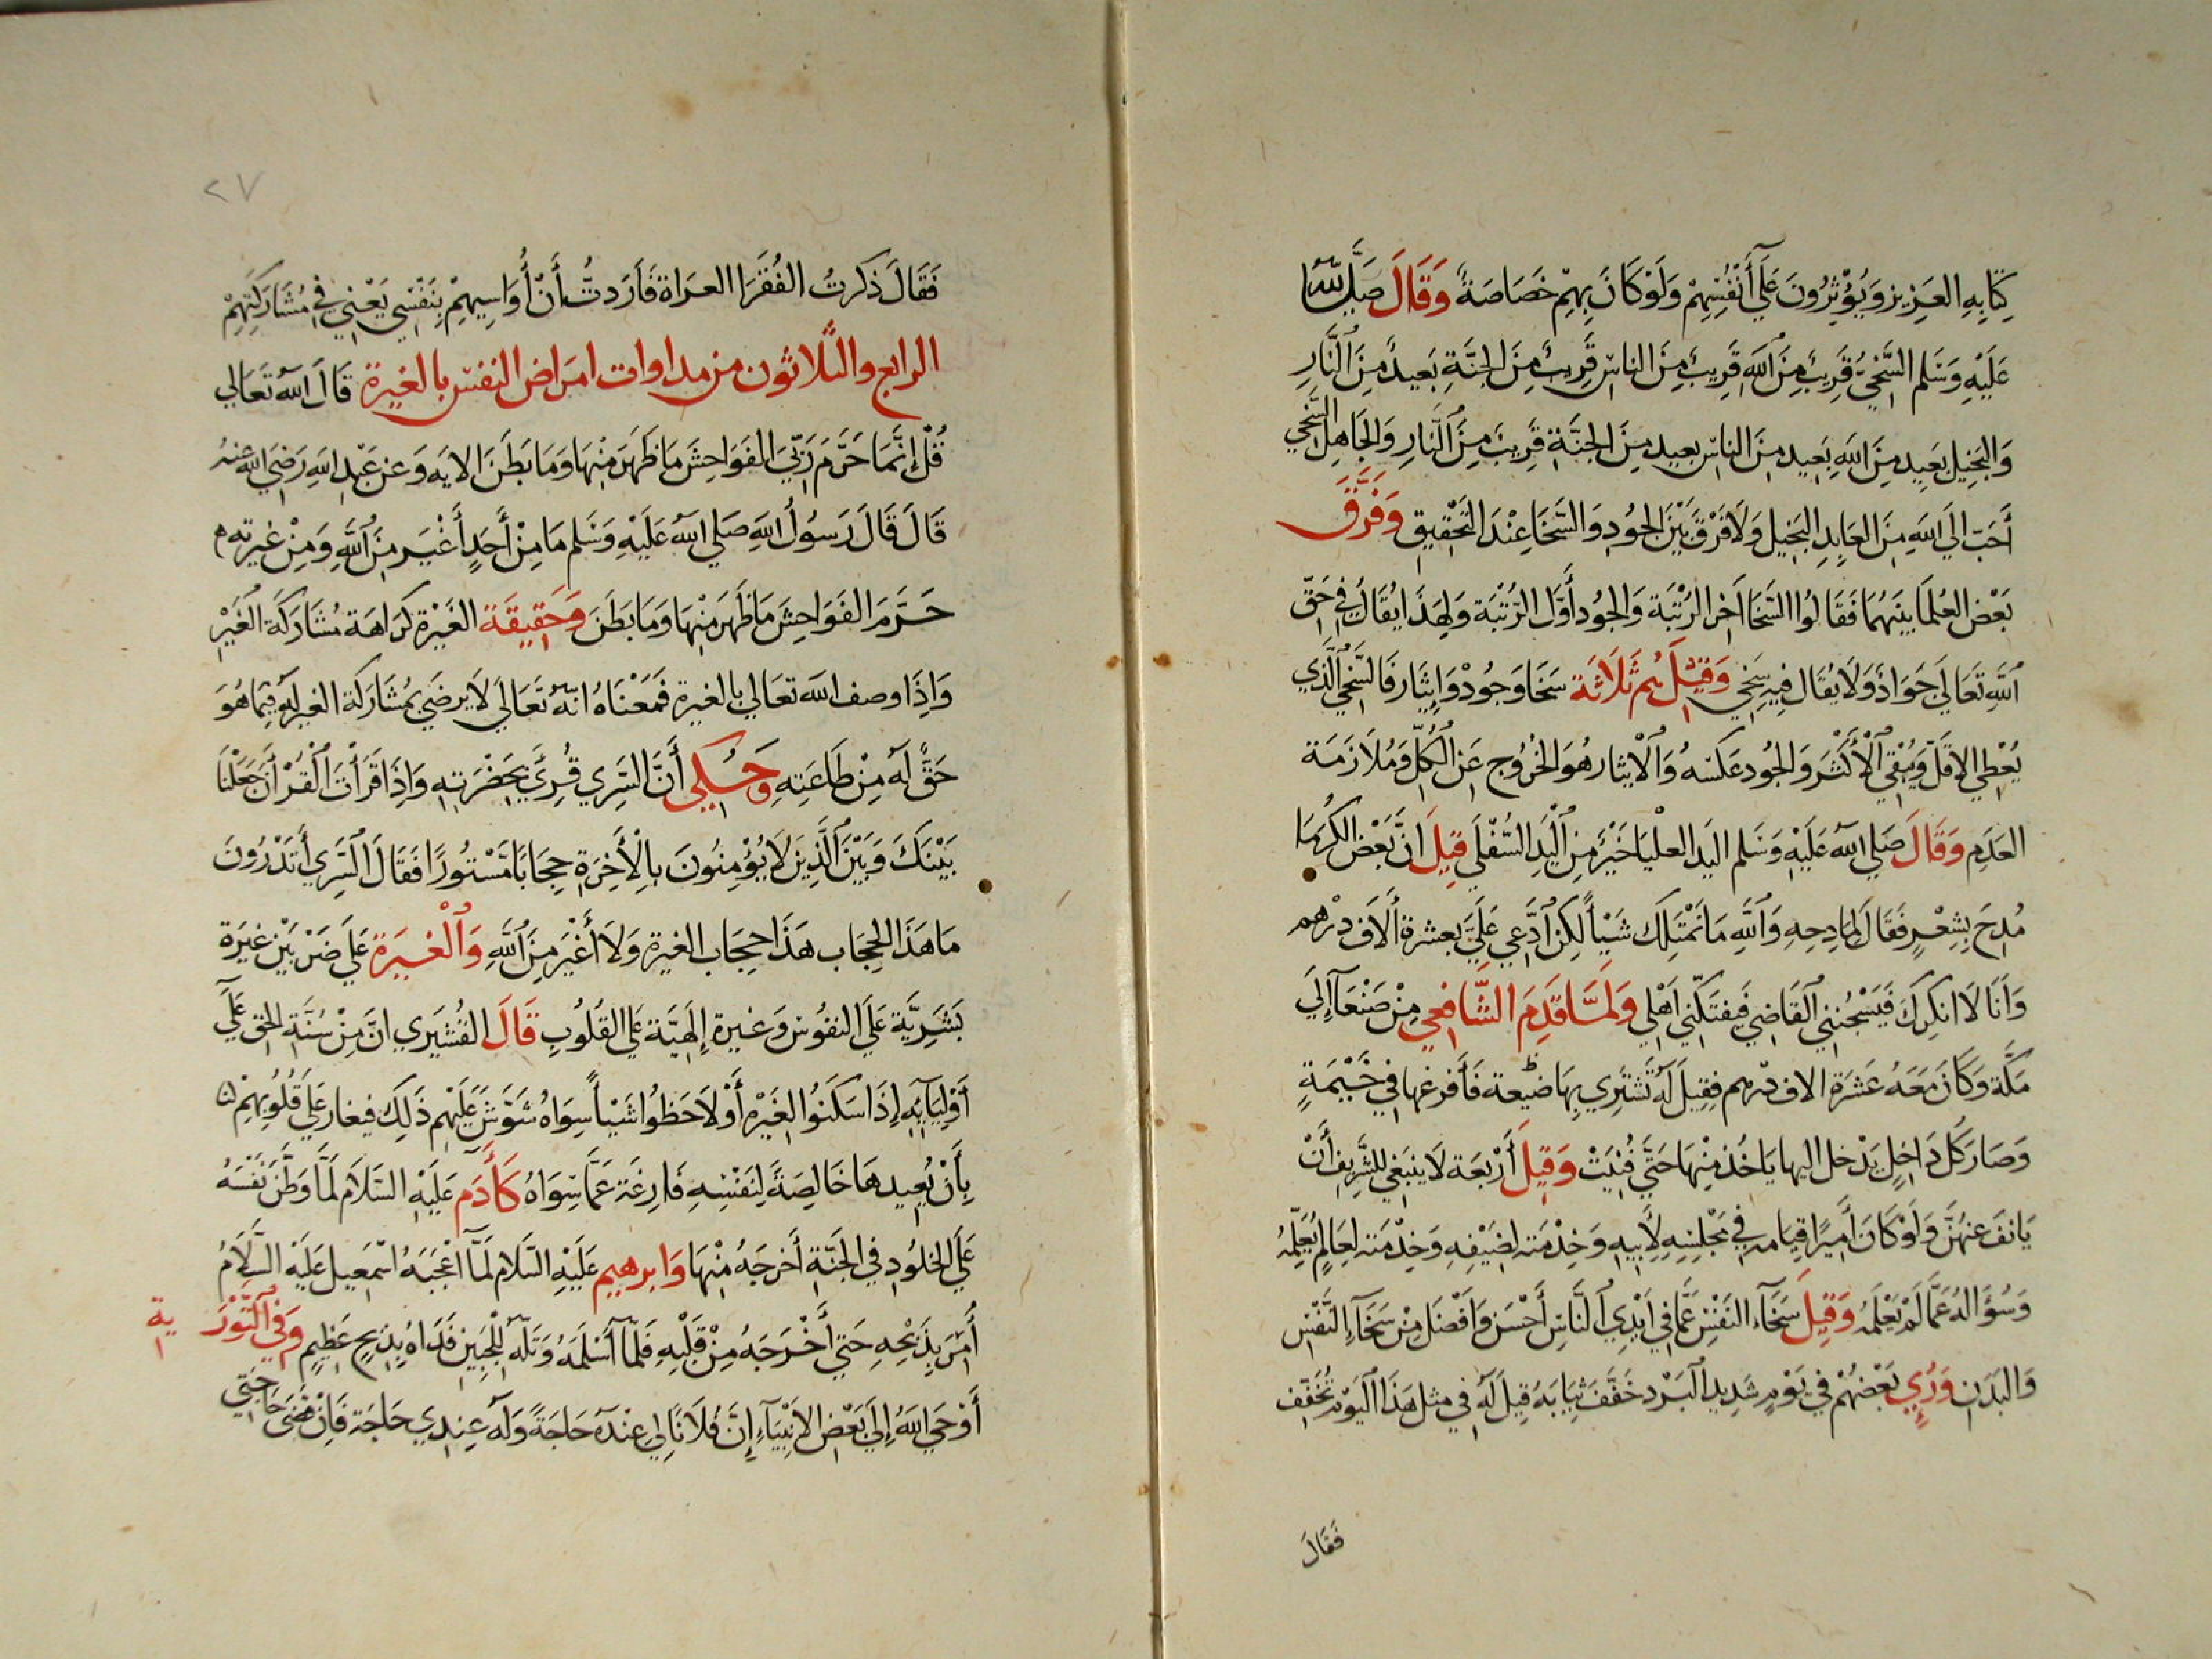 كِتَابِهِ العَزِيزِ وَيُؤْثِرُونَ عَلَى أَنْفُسِهِمْ وَلَوْ كَانَ بِهِمْ خَصَاصَةٌ وَقَالَ صَلَّى اللهُ
عَلَيْهِ وَسَلم السَّخِيُّ قَرِيبٌ مِنَ اللَّهِ قَرِيبٌ مِنَ الناسِ قَرِيبٌ مِنَ الجَنَّةِ بَعِيدٌ مِنَ النَّارِ
وَالبَخِيل بَعِيد مِنَ اللَّهِ بَعِيد مِنَ الناسِ بعيد مِنَ الجَنَّةِ قَرِيبَ مِنَ النَّارِ وَالجَاهِل السَّخِي
أَحَبّ الي اللَّهِ مِنَ العَابِدِ البَخِيل وَلَا فَرْقَ بَيْنَ الجُودِ وَالسَّخَا عِنْدَ التَحْقِيقِ وَفَرَّقَ
بَعْض العُلَمَا بَينَهُمَا فَقَالُوا السَّخَا آخر الرُتْبَة وَالجُود أَوَّل الرُتْبَة وَلِهَذَا يُقَالُ فِي حَقِّ
اللَّهِ تَعَالَى جَوَادٌ وَلَا يُقَال فِيهِ سَخِي وَقِيلَ هُم ثَلَاثَة سَخَا وَجُودٌ وَإِيثَار فَالسَّخِي الَّذِي
يُعْطِي الاقَلّ وَيُبْقِي الْأَكْثَرَ وَالجُود عَكسه وَالْايثار هُوَ الخُرُوج عَنِ الْكُلِّ وَمُلَازَمَة
العَدَمِ وَقَالَ صَلي الله عَلَيْهِ وَسَلم اليَد العلْيَا خَيْرٌ مِنَ الْيَدِ السُّفْلَى قِيلَ انَّ بَعْض الكُرمَا
مُدِحَ بِشِعْرٍ فَقَالَ لِمَادِحِهِ وَاللَّهِ مَا نَمْتَلِك شَيْأً لكِن ادَّعِي عَلَيَّ بعشرة ألاف درْهم
وَأَنَا لَا انكِركَ فَيَسْجُننِي القَاضِي فَيَفتَكّنِي اَهْلِي وَلَمَّا قَدِمَ الشَّافِعِي مِنْ صَنْعَآ إِلَي
مَكَّة وَكَانَ مَعَهُ عَشْرَة الاف درهم فَقِيلَ لَهُ تَشتَرِي بِهَا ضيْعة فَأَفرغها فِي خَيْمَةٍ
وَصَارَ كُل دَاخِلٍ يَدْخل اليها يَاخُذ مِنْهَا حَتَّى فُنِيَتْ وَقِيلَ أَرْبَعَة لَا ينبَغي للشَّرِيف أَنْ
يَانفَ عَنهُنَّ وَلَوْ كَانَ أَمِيرًا قِيَامه فِي مَجْلِسِهِ لِأَبِيهِ وَخِدْمَته لِضَيْفِهِ وَخِدْمَته لِعَالِمٍ يُعَلِّمُهُ
وَسُؤَالهُ عَمَّا لَمْ يَعْلَمهُ وَقِيلَ سَخَآء النَفْسِ عَمَّا فِي اَيْدِي النَّاسِ أَحْسَن وَأَفْضَل مِنْ سَخَآءِ النَّفْسِ
وَالبَدَنِ وَرُئِي بَعْضهُمْ فِي يَوْمٍ شَدِيد البَرْد خَفَّفَ ثِيَابَهُ قِيلَ لَهُ فِي مثل هَذَا الْيَوْم تُخَفِّف
فَقَالَ
٢٧
فَقَالَ ذَكَرتُ الفُقَرَا العرَاة فَأَرَدتُّ أَنْ أُوَاسِيهِمْ بِنَفْسِي يَعْنِي فِي مُشَارَكَتِهِمْ
الرابع والثلاثون من مداوات امراض النفس بالغيرة قَالَ اللَّه تَعَالي
قُلْ إِنَّمَا حَرَّمَ رَبِّيَ الفَوَاحِشَ مَا ظَهَرَ مِنْهَا وَمَا بَطَنَ الايه وَعن عَبْدِ اللَّهِ رَضِيَ الله عنهُ
قَالَ قَالَ رَسُولُ اللَّهِ صَلي الله عَلَيْهِ وَسَلم مَا مِنْ أَحَدٍ أَغْيَر مِنَ اللَّهِ وَمِنْ غيرته
حَرَّمَ الفَوَاحِشَ مَا ظَهَرَ مِنْهَا وَمَا بَطَنَ وَحَقِيقَة الغَيْرَة كَرَاهَة مُشَارَكَة الْغَيْر
وَإِذَا وصف الله تعَالي بالغيرة فَمَعْنَاهُ انَّهُ تَعَالَى لَا يرضَي بمُشَارَكَة الغير لَهُ فِيمَا هُوَ
حَقٌّ لَهُ مِنْ طَاعَتِهِ وَحُكِي أَنَّ السَّرِي قُرِئَ بِحَضْرَتِهِ وَإِذَا قَرَأْتَ الْقُرْآنَ جَعَلْنَا
بَيْنَكَ وَبَيْنَ الَّذِينَ لَا يُؤْمِنُونَ بِالْأَخِرَةِ حِجَابًا مَسْتُورًا فَقَالَ السَّرِي أَتَدْرُونَ
مَا هَذَا الحِجَاب هَذَا حِجَاب الغيرة وَلَا أَغْيَر مِنَ اللَّهِ وَالْغَيرَة عَلَي ضَرْبَيْنِ غيْرَة
بَشَرِيَّة عَلَى النفُوس وَغيرة إِلَهِيَّة عَلَى القُلُوبِ قَالَ القُشَيرِي انَّ مِنْ سُنَّة الحق عَلَي
أَوْلِيَآيِهِ إِذَا سَكَنوُا لِغَيْرِهِ أَوْ لَاحَظُوا شَيْأً سِوَاهُ شَوَّشَ عَلَيْهِم ذَلِكَ فيغار عَلَى قُلُوبِهِمْ
بِأَنْ يُعِيدهَا خَالِصَةً لِنَفْسِهِ فَارِغَة عَمَّا سِوَاهُ كَأَدَم عَلَيْهِ السَّلَام لَمَّا وَطَّنَ نَفْسَهُ
عَلَي الخلُود فِي الجَنَّةِ أَخرَجَهُ مِنْهَا وَابرهيم عَلَيْهِ السَّلام لَمَّا اعْجَبَهُ اسْمعِيل عَلَيْهِ السَّلَامُ
أُمِرَ بِذَبْحِهِ حَتي أَخْرَجَهُ مِنْ قَلْبِهِ فَلَمَّا أَسْلَمَهُ وَتَلَّهُ لِلْجَبِينِ فَدَاهُ بِذِبْحٍ عَظِيمٍ وَفِي التَّوْرَ ية
أَوْحَي اللَّهُ إِلَي بَعْض الانْبِيَآءِ إِنَّ فُلَانًا لِي عِنْدَهُ حَاجَةً وَلَهُ عِندِي حَاجَة فَإِنْ قَضَى حَاجَتِي